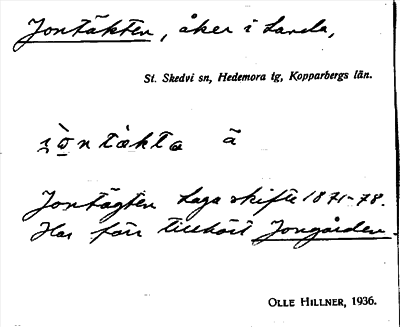 Jontäkten, åker i Landa,
St. Skedvi sn, Hedemora tg, Kopparbergs län.
jòntàkta ä
Jontägten Laga skifte 1871-78.
Har förr tillhört Jongården.
OLLE HILLNER, 1936.